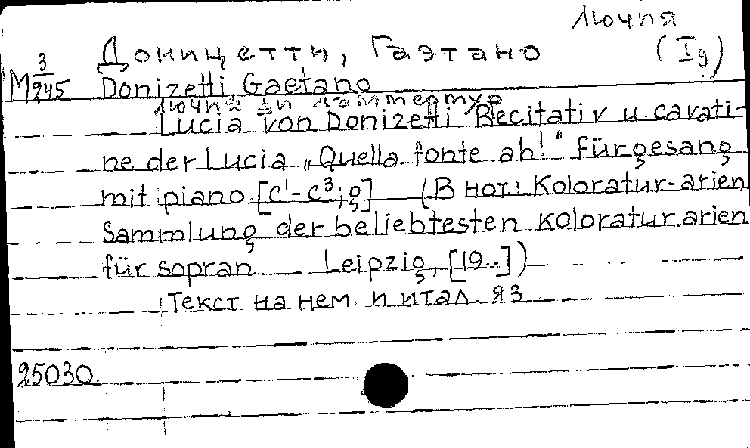 Лючия
Доницетти, Гаэтано (Ig)
М 3/245 Donizetti, Gaetano
Лючия ди Ламмермур
Lucia von Donizetti Recitativ u cavati-
ne der Lucia „Quella fonte ah!" für gesang
mit piano [c¹-c³; g] (В нот: Koloratur-arien
Sammlung der beliebtesten Koloratur. arien
für sopran Leipzig, [19..])
Текст на нем. и итал. яз
25030.